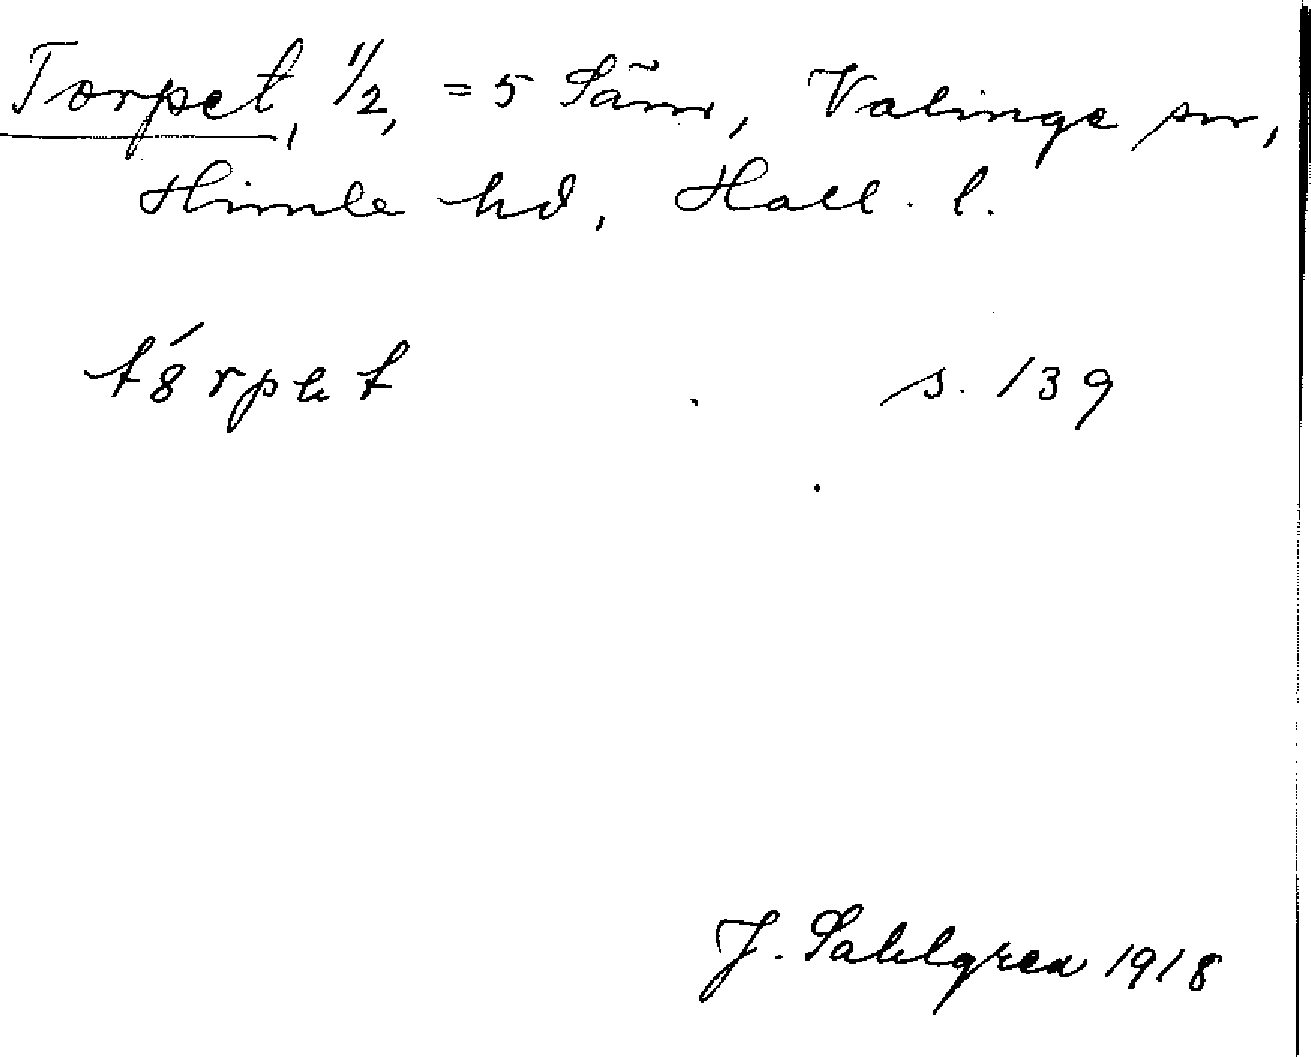 Torpet, 1/2, = 5 Säm, Valinge sn,
Himle hd, Hall. l.
tó̤rpet s. 139
J. Sahlgren 1918